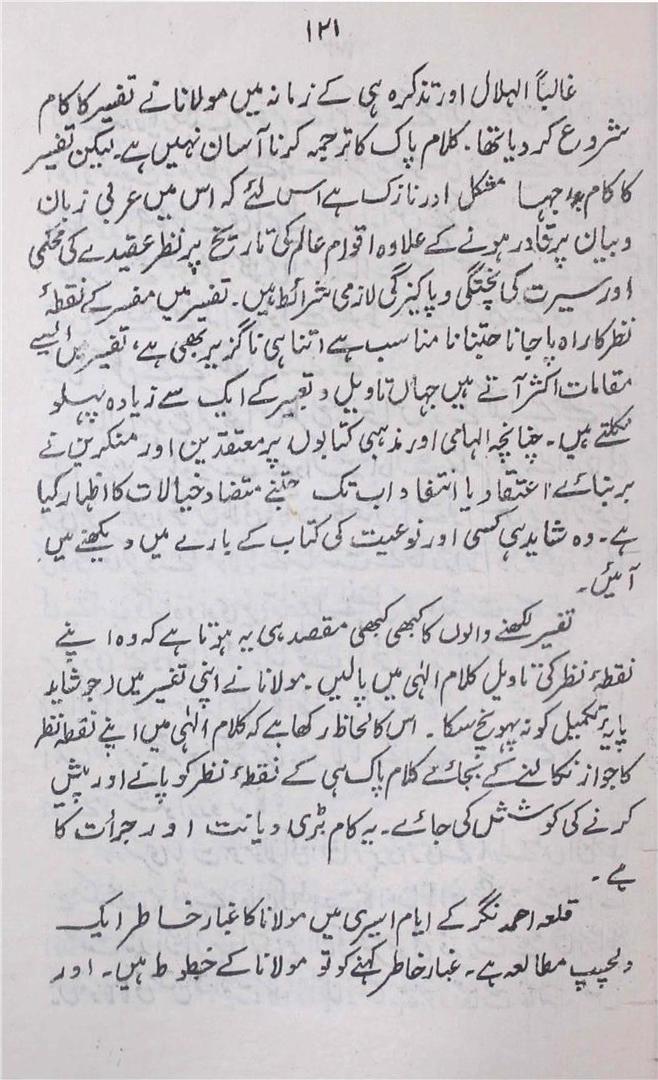 ۱۲۱
غالباً الہلال اور تذکرہ ہی کے زمانہ میں مولانا نے تفسیر کا کام
شروع کر دیا تھا۔ کلام پاک کا ترجمہ کرنا آسان نہیں ہے۔ لیکن تفسیر
کا کام مشکل اور نازک ہے اس لئے کہ اس میں عربی زبان
و بیان پر قادر ہونے کے علاوہ اقوام عالم کی تاریخ پر نظر عقیدے کی محکمی
اور سیرت کی پختگی و پاکیزگی لازمی شرائط ہیں۔ تفسیر میں مفسر کے نقطۂ
نظر کا راہ پا جانا جتنا نا مناسب ہے اتنا ہی ناگزیر بھی ہے، تفسیر میں ایسے
مقامات اکثر آتے ہیں جہاں تاویل و تعبیر کے ایک سے زیادہ پہلو
نکلتے ہیں۔ چنانچہ الہامی اور مذہبی کتابوں پر معتقدین اور منکرین نے
بر بنائے اعتقاد یا انتقاد اب تک جتنے متضاد خیالات کا اظہار کیا
ہے۔ وہ شاید ہی کسی اور نوعیت کی کتاب کے بارے میں دیکھنے میں
آئیں۔
تفسیر لکھنے والوں کا کبھی کبھی مقصد ہی یہ ہوتا ہے کہ وہ اپنے
نقطہ نظر کی تاویل کلام الٰہی میں پالیں۔ مولانا نے اپنی تفسیر میں (جو شاید
پایۂ تکمیل کو نہ پہونچ سکا۔ اس کا لحاظ رکھا ہے کہ کلام الٰہی میں اپنے نقطہ نظر
کا جواز نکالنے کے بجائے کلام پاک ہی کے نقطہ نظر کو پانے اور پیش
کرنے کی کوشش کی جائے۔ یہ کام بڑی دیانت اور جرأت کا
ہے۔
قلعہ احمد نگر کے ایام اسیری میں مولانا کا غبار خاطر ایک
دلچسپ مطالعہ ہے۔ غبار خاطر کہنے کو تو مولانا کے خطوط ہیں۔ اور